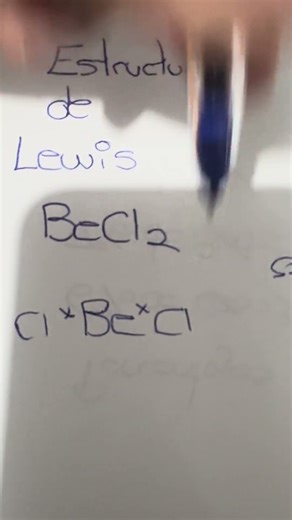 Estructu
de
Lewis
BeCl2
Cl×Be×Cl